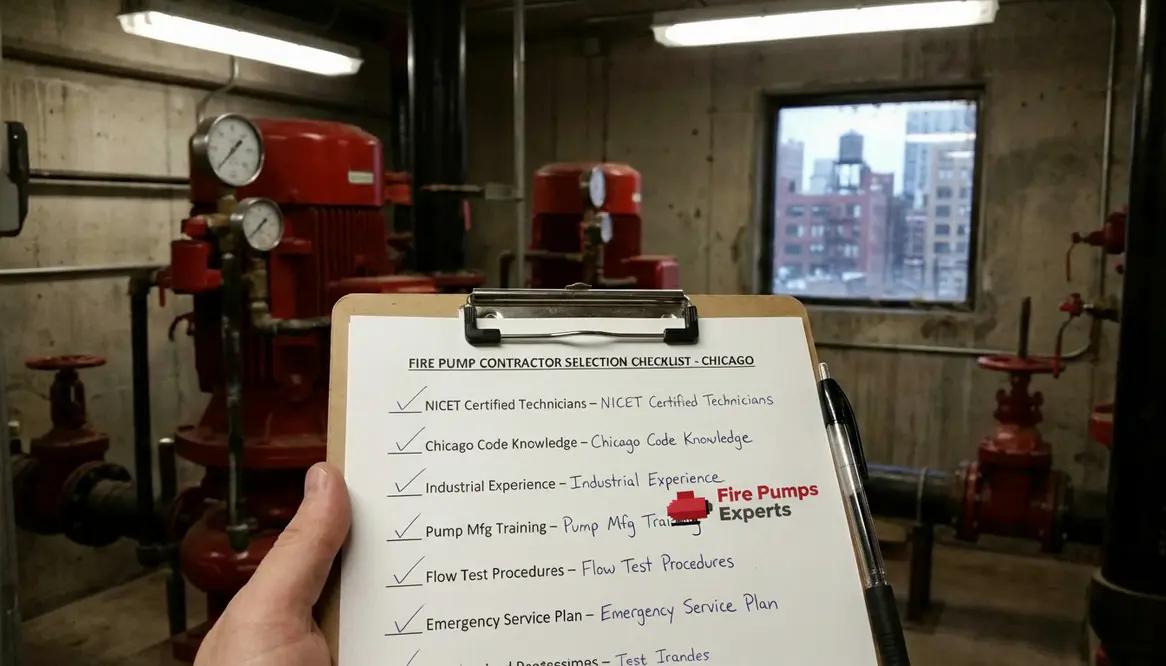 FIRE PUMP CONTRACTOR SELECTION CHECKLIST - CHICAGO
NICET Certified Technicians – NICET Certified Technicians
Chicago Code Knowledge – Chicago Code Knowledge
Industrial Experience – Industrial Experience
Fire Pumps
Experts
Pump Mfg Training – Pump Mfg
Flow Test Procedures – Flow Test Procedures
Emergency Service Plan – Emergency Service Plan
– Test Irandes